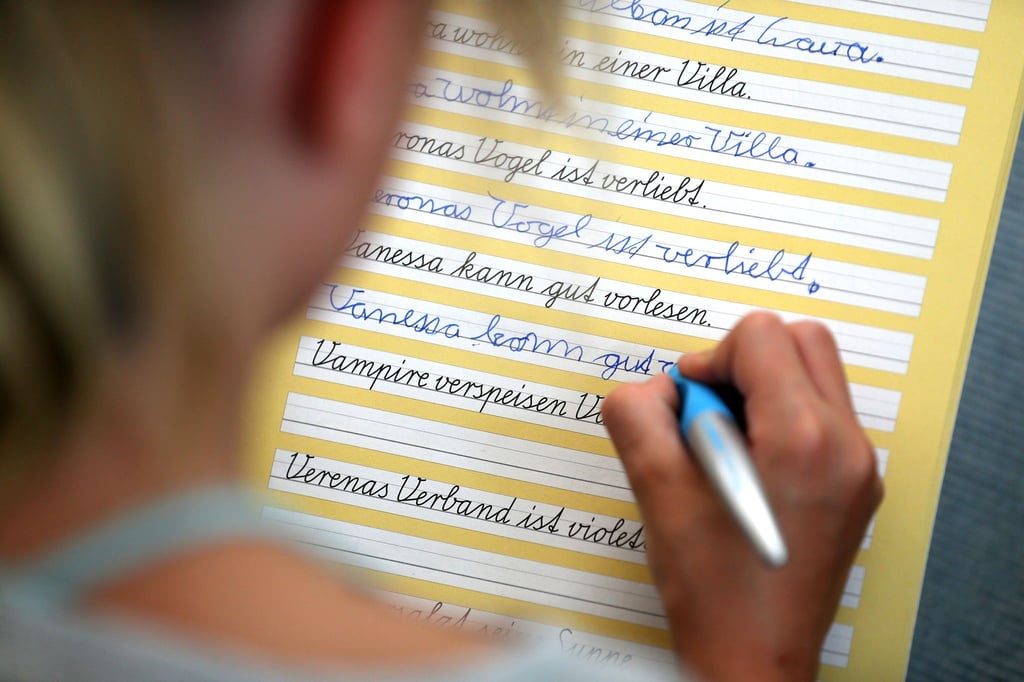 ist Lava.
wohnt in einer Villa.
a wohnt in einer Villa.
ronas Vogel ist verliebt.
eronas Vogel ist verliebt.
Vanessa kann gut vorlesen.
Vanessa kann gut
Vampire verspeisen
Verenas Verband ist violett